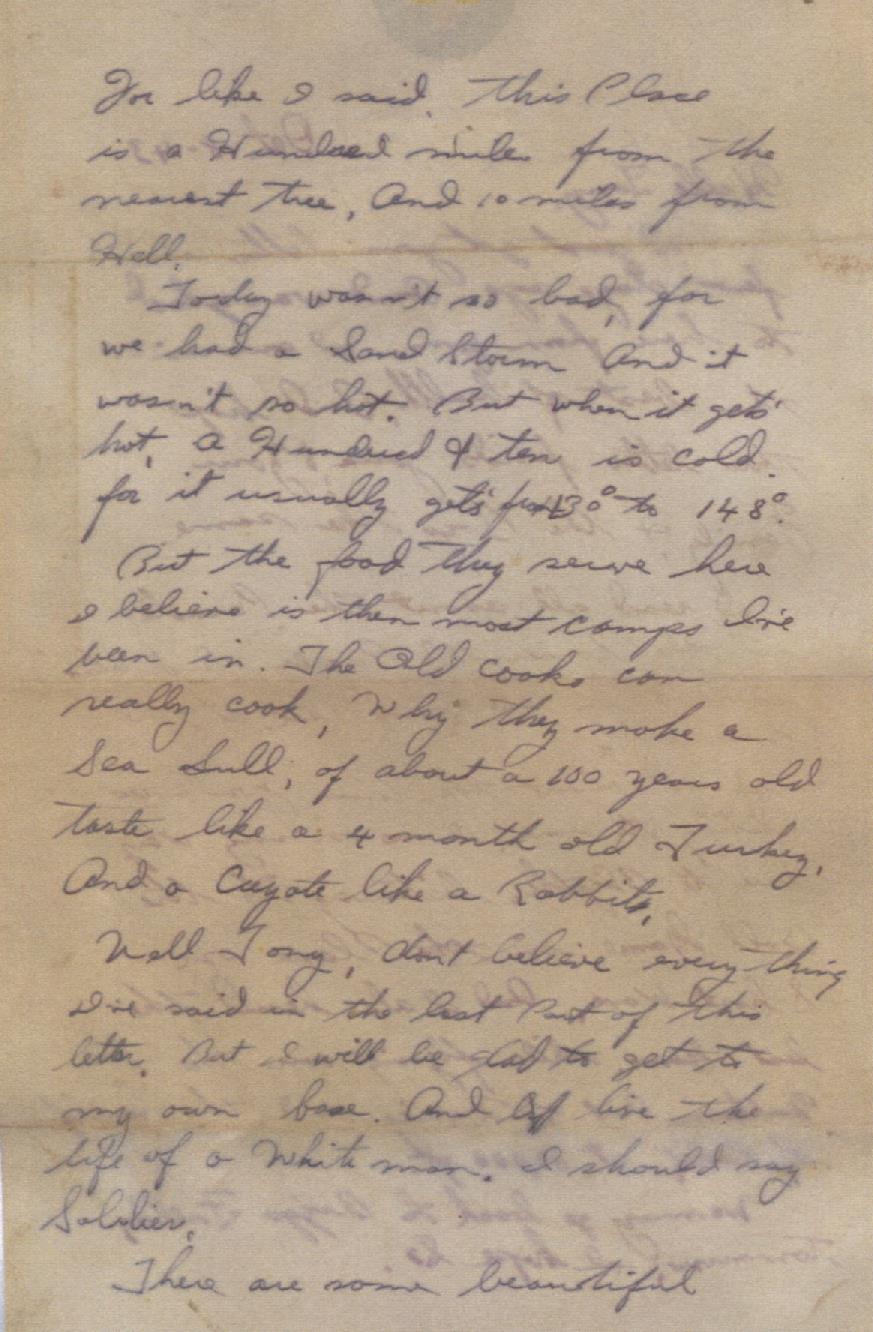 For like I said, this Place
is a Hundred miles from the
nearest tree, And 10 miles from
Hell.
Today wasn't so bad, for
we had a Sand Storm And it
wasn't so hot. But when it gets
hot, a Hundred & ten is cold.
for it usually gets from 130° to 148°.
But the food they serve here
I believe is then most camps I've
been in. The Old cooks can
really cook, Why they make a
Sea Gull, of about a 100 years old
taste like a 4 month old Turkey,
And a Cuyote like a Rabbit,
Well Tony, don't believe everything
I've said in the last Part of this
letter. But I will be glad to get to
my own base. And live the
life of a White man. I should say
Soldier.
There are some beautiful